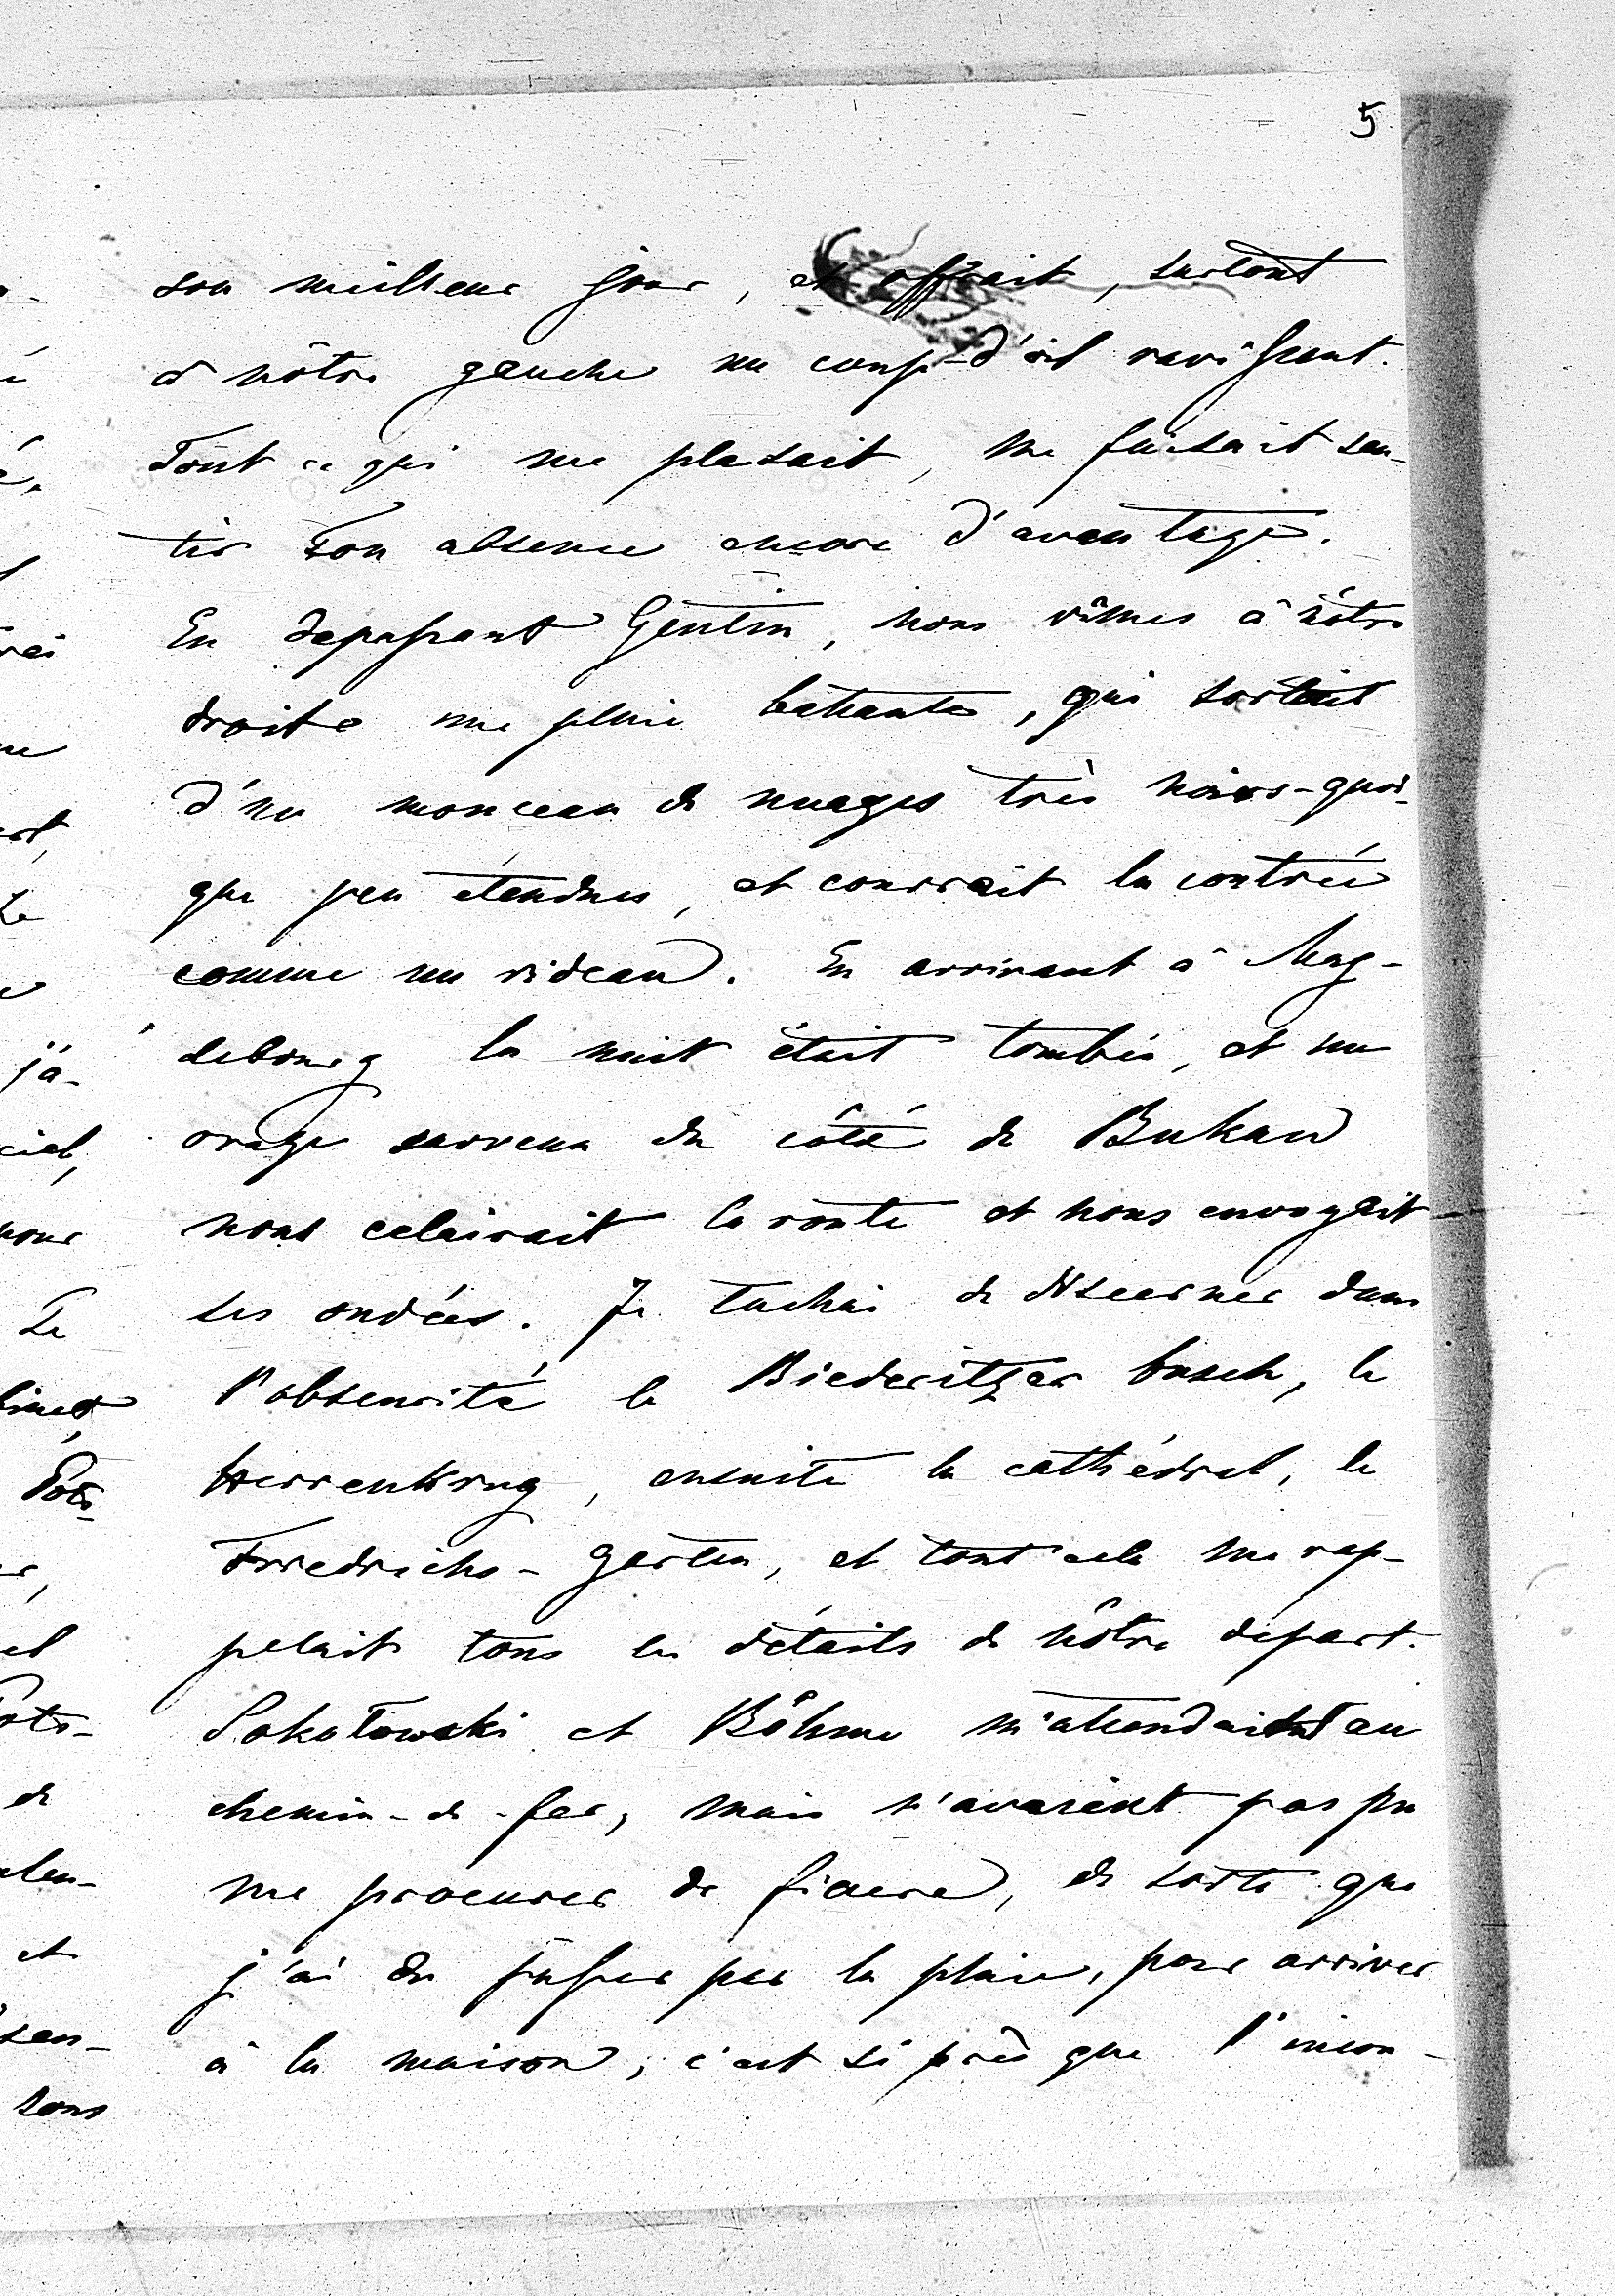 5
son meilleur jour, et offrait, surtout
à nôtre gauche un coup-d'œil ravissant.
Tout ce qui me plaisait, me faisait sen-
tir Ton absence encore d'avantage.
En depassant Gentin, nous vîmes à nôtre
droite une pluie battante, qui sortait
d'un monceau de nuages très noirs-quoi-
que peu étendues, et couvrait la contrée
comme un rideau. En arrivant à Mag-
debourg la nuit était tombée, et un
orage survenu du côté de Bukau
nous eclairait la route et nous envoyait
ses ondées. Je tachai de discerner dans
l'obscurité le Biederitzer busch, le
Herrenkrug, ensuite la cathédral, le
Friedrichs-Garten, et tout cela me rap-
pelait tous les détails de nôtre départ.
Sokołowski et Böhme m'attendaient au
chemin-de-fer, mais n'avaient pas pu
me procurer de fiacre, de sorte que
j'ai du passer par la pluie, pour arriver
à la maison; c'est si près que l'incon-
j'a-
ciel,
pour
Le
de
et
sen-
sons